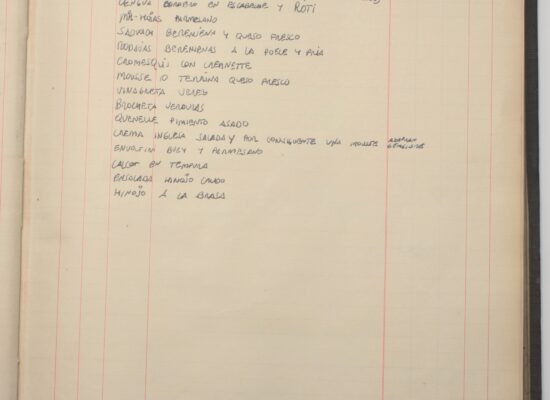 LENGUA CORDERO EN ESCABECHE Y ROTI
MIL-HOJAS PARMESANO
BERENJENA Y QUESO FRESCO
RODAJAS BERENJENAS A LA POELE Y FRIA
CROMESQUIS CON CREPINETTE
MOUSSE O TERRINA QUESO FRESCO
VINAGRETA JEREZ
BROCHETA VERDURAS
QUENELLE PIMIENTO ASADO
CREMA INGLESA SALADA Y POR CONSIGUIENTE UNA MOUSSE
ENVOLTINI BUEY Y PARMESANO
CALÇOT EN TEMPURA
ENSALADA HINOJO CRUDO
HINOJO A LA BRASA